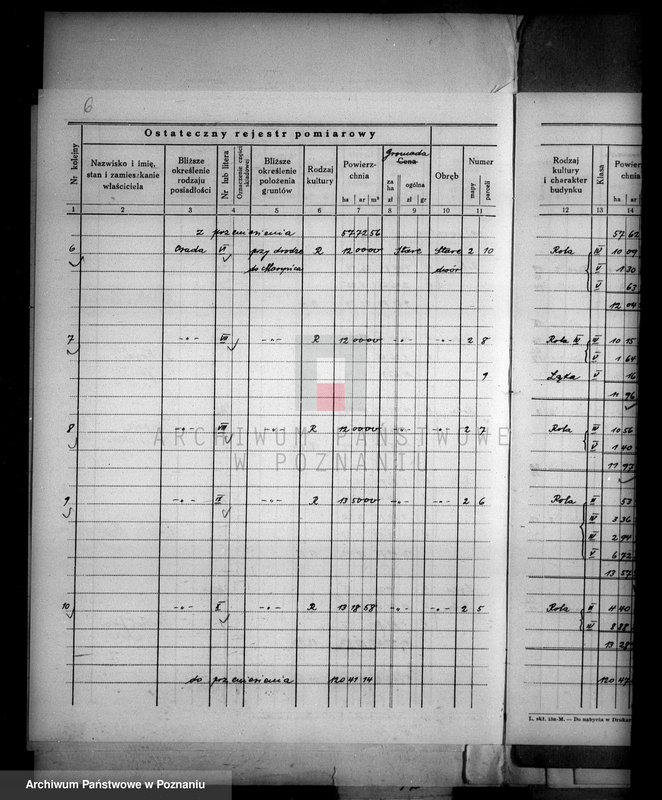 6
Ostateczny rejestr pomiarowy
Nr. kolejny
Nazwisko i imię, stan i zamieszkanie właściciela
Bliższe określenie rodzaju posiadłości
Nr lub litera
Oznaczenie części składowej
Bliższe określenie położenia gruntów
Rodzaj kultury
Powierzchnia
ha ar m²
Gromada
Cena
za ha ogólna
zł zł gr
Obręb
Numer
mapy parceli
Rodzaj kultury i charakter budynku
Klasa
Powierz
chnia
ha ar
1 2 3 4 5 6 7 8 9 10 11 12 13 14
z przeniesienia 57 72 56 57 62
6 Osada VI przy drodze R 12 00 00 Stare Stare 2 10 Rola IV 10 09
do Marynica dwór V 1 30
V 63
12 04
7 -"- VII -"- R 12 00 00 -"- -"- 2 8 Rola IV 10 15
V 1 64
9 Łąka V 16
11 96
8 -"- VIII -"- R 12 00 00 -"- -"- 2 7 Rola IV 10 56
V 1 40
11 97
9 -"- IX -"- R 13 50 00 -"- -"- 2 6 Rola II 53
IV 3 36
IV 2 94
V 6 72
13 57
10 -"- X -"- R 13 18 58 -"- -"- 2 5 Rola II 4 40
IV 8 88
13 28
do przeniesienia 120 41 14 120 47
L. skł. 15a-M. — Do nabycia w Drukar
ARCHIWUM PAŃSTWOWE
W POZNANIU
Archiwum Państwowe w Poznaniu